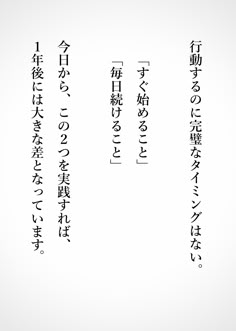 行動するのに完璧なタイミングはない。
「すぐ始めること」
「毎日続けること」
今日から、この２つを実践すれば、
１年後には大きな差となっています。